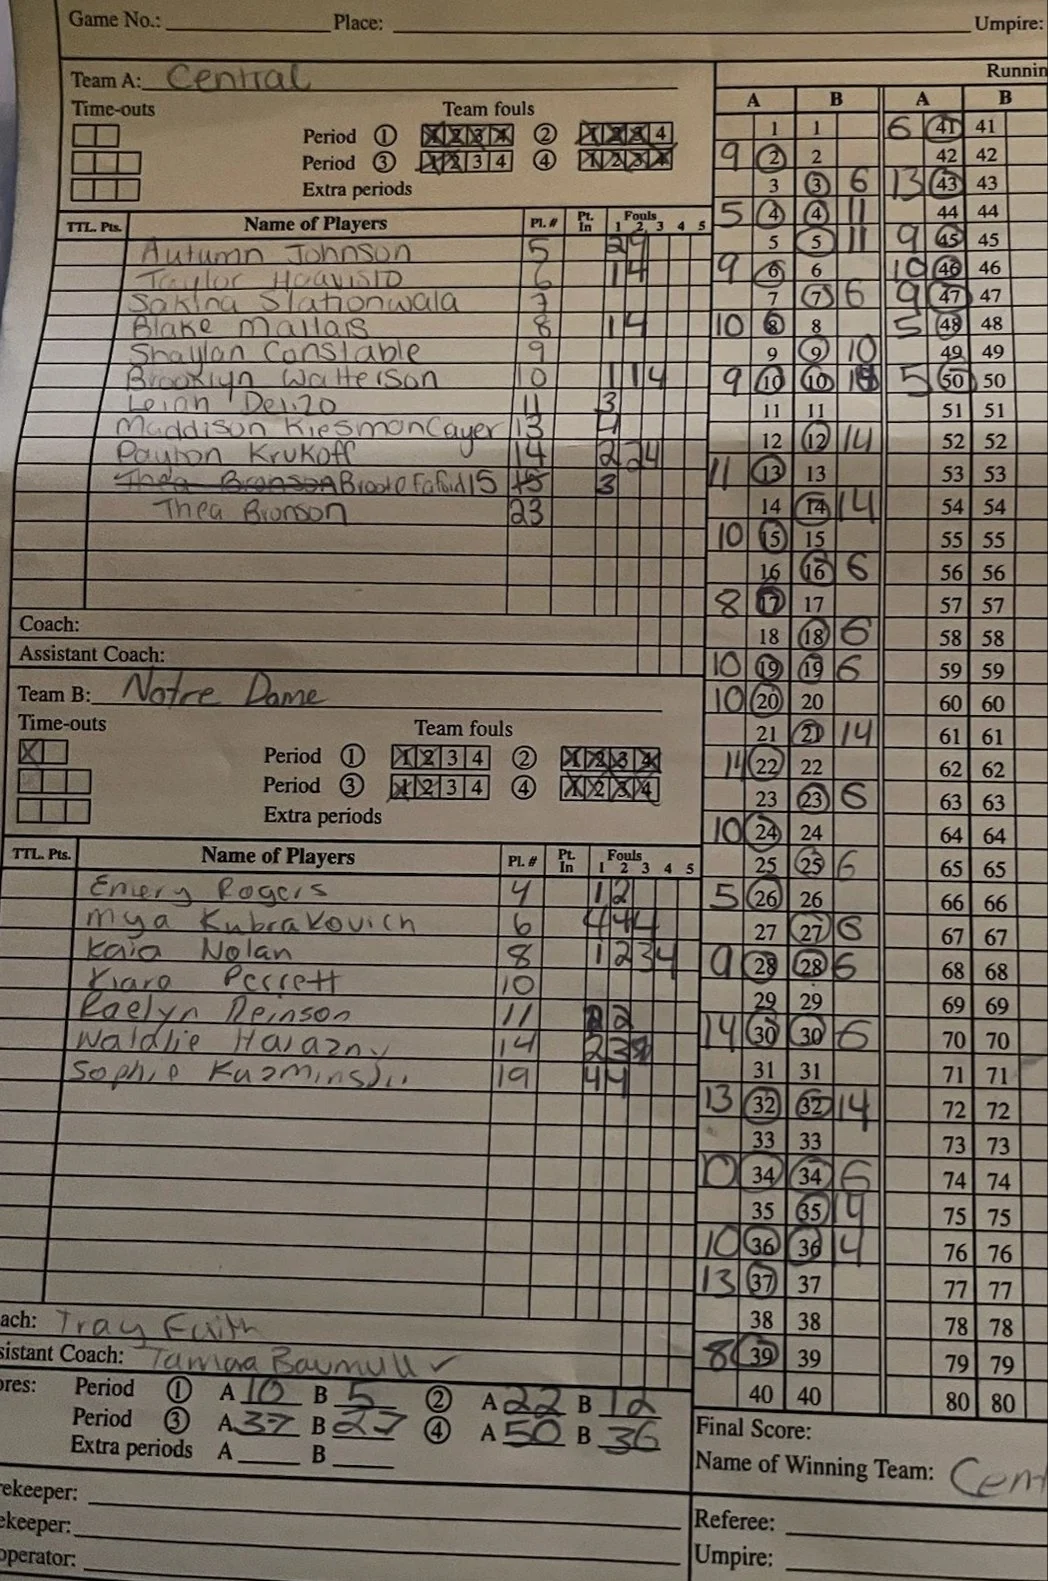 Game No.: Place: Umpire:
Team A: Central
Time-outs Team fouls
Period ① 1 2 3 4 ② 1 2 3 4
Period ③ 1 2 3 4 ④ 1 2 3 4
Extra periods
TTL. Pts. Name of Players Pl. # Pt. In Fouls 1 2 3 4 5
Autumn Johnson 5 2 4
Taylor Haavisto 6 1 4
Sakina Slationwala 7
Blake Mallais 8 1 4
Shaylan Constable 9
Brooklyn Watterson 10 1 1 4
Leiah Delizo 11 3
Maddison Kiesman Cayer 13 4
Payton Krukoff 14 2 2 4
Thea Bronson Brooke 15 15 3
Thea Bronson 23
Coach:
Assistant Coach:
Team B: Notre Dame
Time-outs Team fouls
Period ① 1 2 3 4 ② 1 2 3 4
Period ③ 1 2 3 4 ④ 1 2 3 4
Extra periods
TTL. Pts. Name of Players Pl. # Pt. In Fouls 1 2 3 4 5
Emery Rogers 4 1 2
Mya Kubrakovich 6 4 4 4
Kaia Nolan 8 1 2 3 4
Kiara Perrett 10
Raelyn Reinson 11 2
14 2 3
Sophie 19 4 4
ach: Tray Faith
sistant Coach: Tamara
ores: Period ① A 10 B 5 ② A 22 B 12
Period ③ A 37 B 27 ④ A 50 B 36
Extra periods A B
rekeeper:
ekeeper:
operator:
Runnin
A B A B
1 1 6 41 41
9 2 2 42 42
3 3 6 13 43 43
5 4 4 11 44 44
5 5 11 9 45 45
9 6 6 10 46 46
7 7 6 9 47 47
10 8 8 5 48 48
9 9 10 49 49
9 10 10 5 50 50
11 11 51 51
12 12 14 52 52
11 13 13 53 53
14 14 14 54 54
10 15 15 55 55
16 16 6 56 56
8 17 17 57 57
18 18 6 58 58
10 19 19 6 59 59
10 20 20 60 60
21 21 14 61 61
11 22 22 62 62
23 23 6 63 63
10 24 24 64 64
25 25 6 65 65
5 26 26 66 66
27 27 6 67 67
9 28 28 6 68 68
29 29 69 69
14 30 30 6 70 70
31 31 71 71
13 32 32 14 72 72
33 33 73 73
10 34 34 6 74 74
35 35 14 75 75
10 36 36 14 76 76
13 37 37 77 77
38 38 78 78
8 39 39 79 79
40 40 80 80
Final Score:
Name of Winning Team: Cent
Referee:
Umpire: